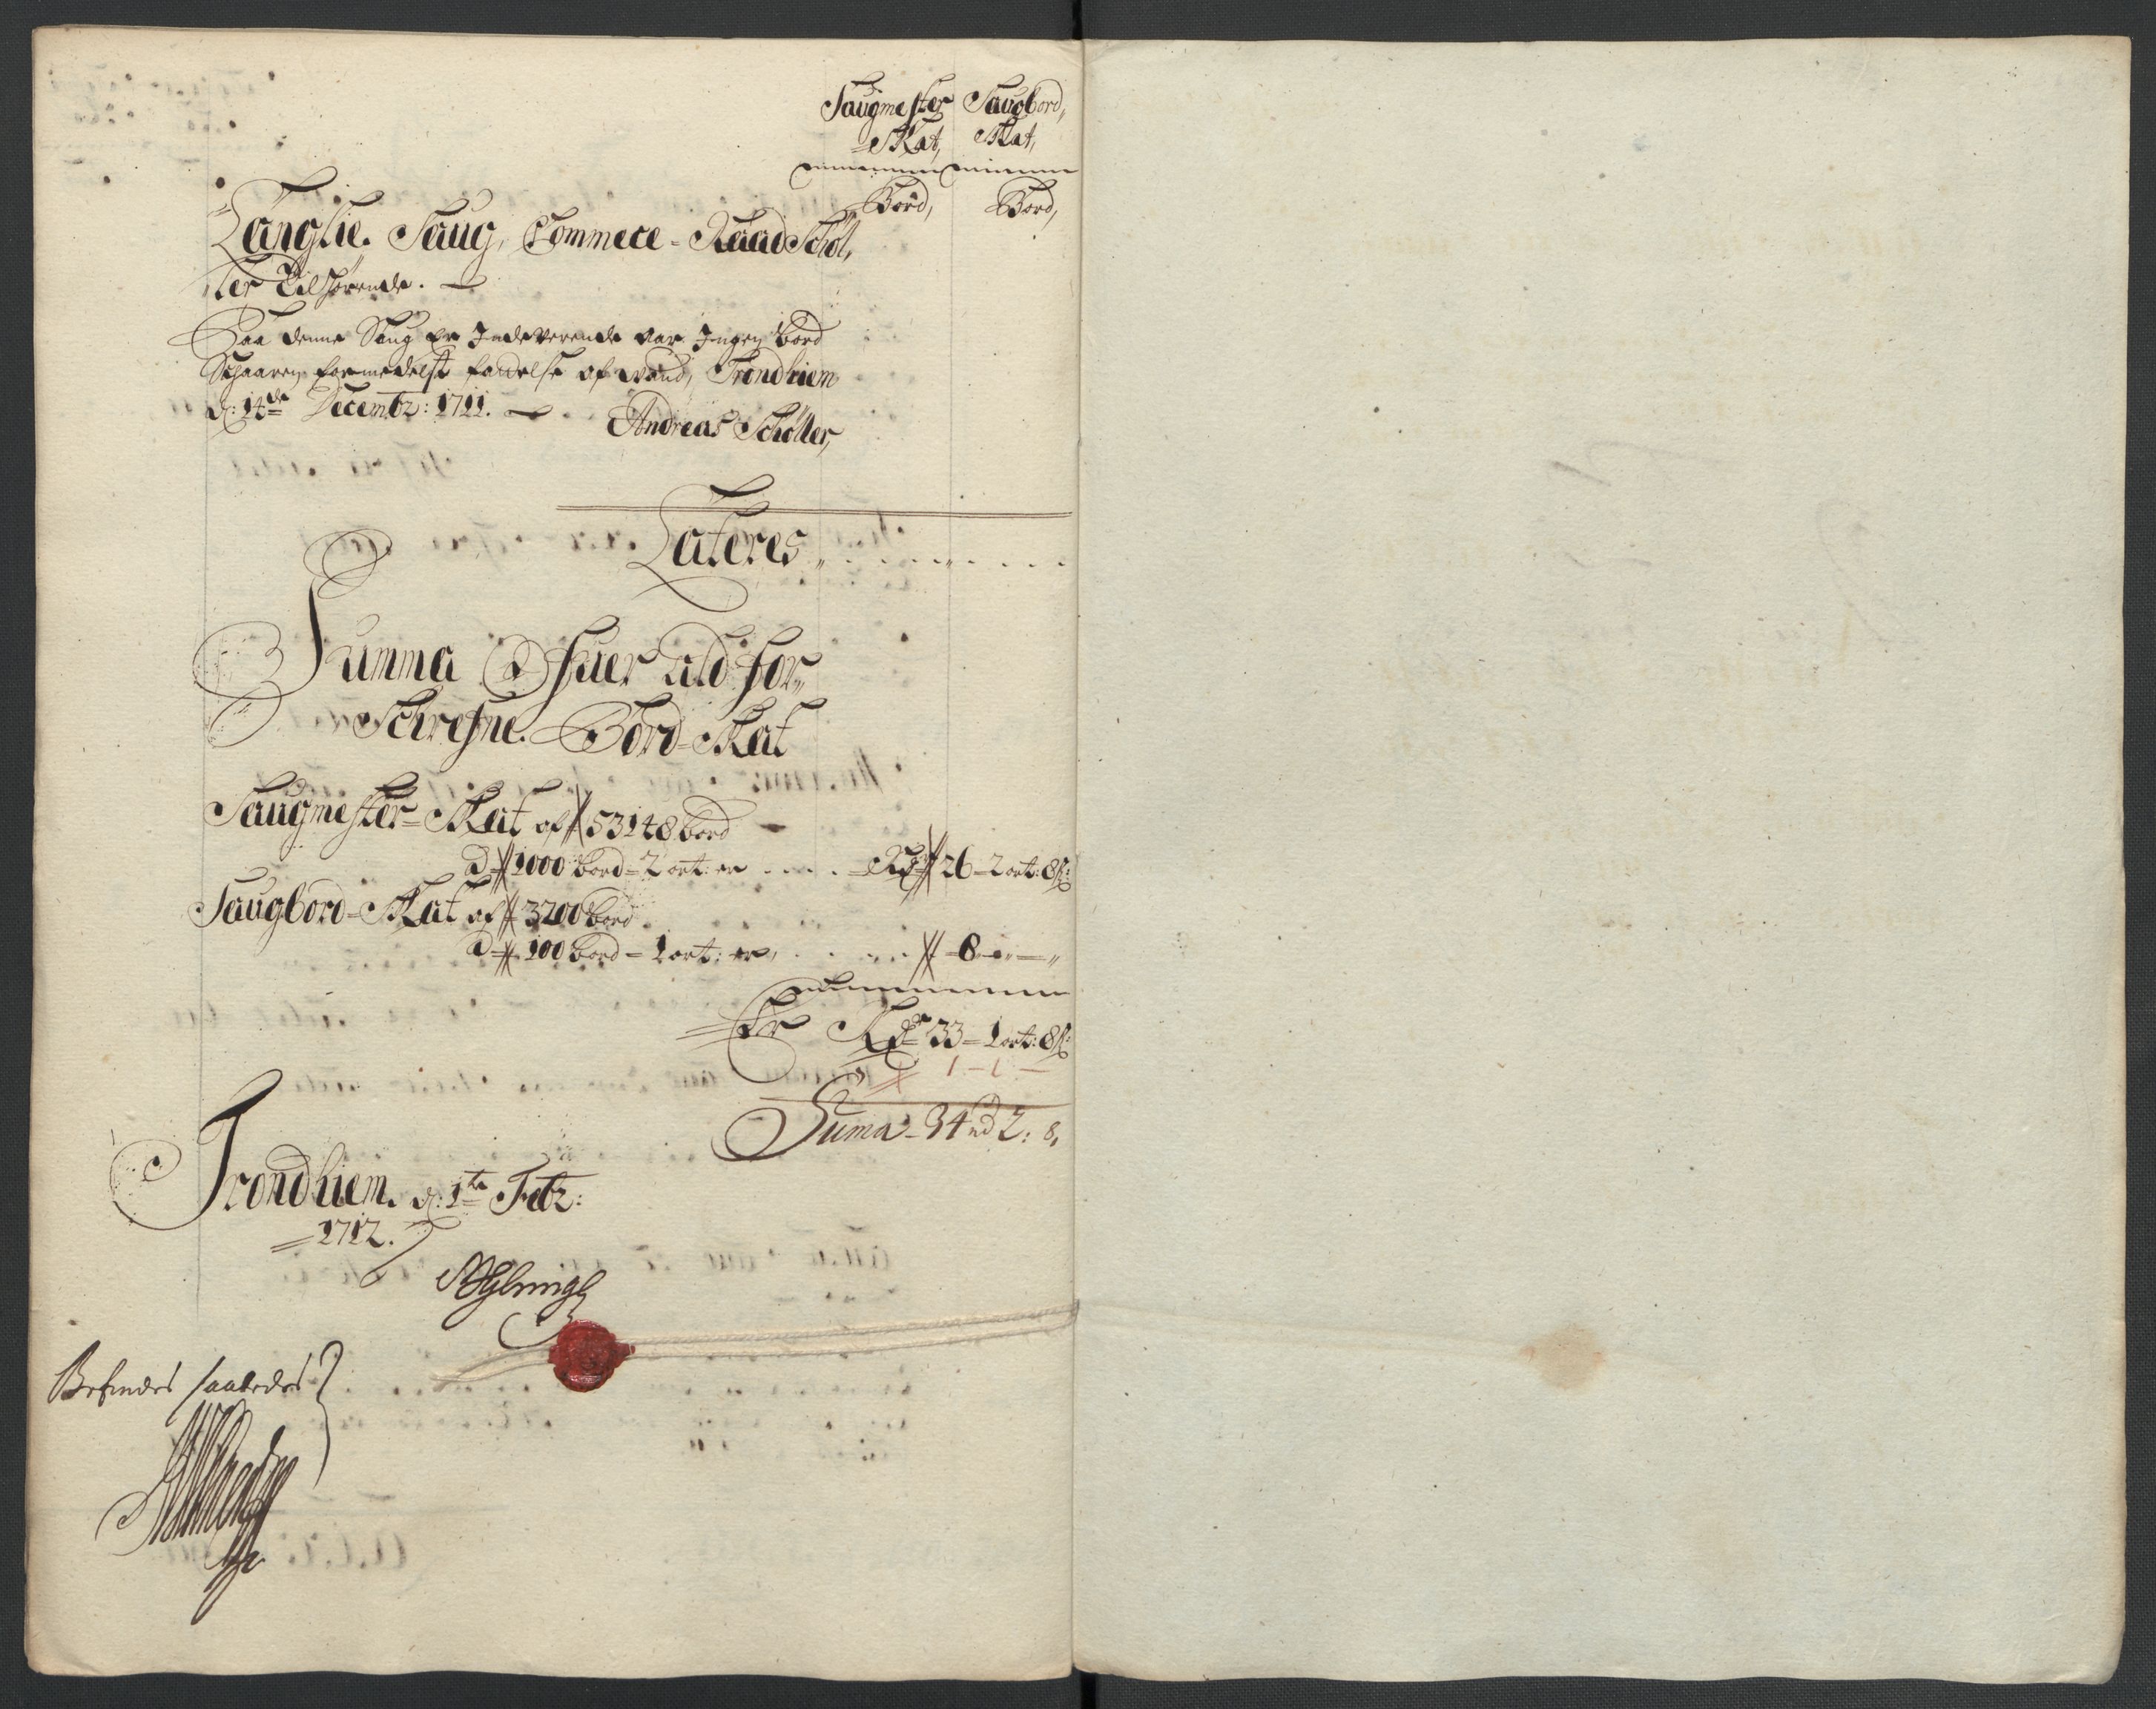 Saugmester Saugbord,
Skat, Skat,
Bord, Bord,
Langlie Saug, Commece-Raad Schøl,
ler Tilhørende.
Paa denne Saug er Indeverende Aar Ingen Bord
Schaaren formedelst af Vand, Trondhiem
d: 14de Decembr: 1711.
Andreas Schøller,
Lateres
Summa Ofver ald for-
Schrefne Bord-Skat
Saugmester-Skat af 53148 bord
à 1000 bord - 2 ort: er . . . . Rdr 26 - 2 ort: 8 s:
Saugbord-Skat af 3200 bord
à 100 bord - 1 ort: er, . . . . 8 - " - "
Er Rdr 33 - 1 ort: 8 s:
1 - 1 -
Suma - 34 rd 2: 8,
Trondhiem. d: 1te Febr:
1712.
Befindes saaledes